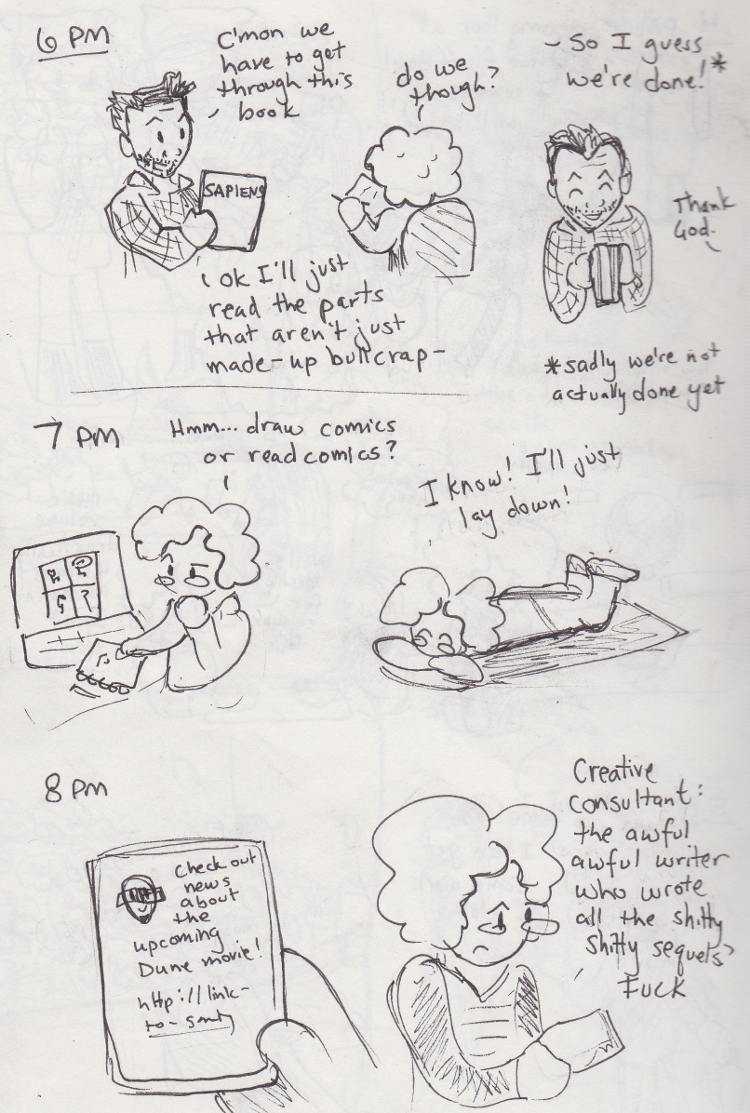 6 PM
C'mon we
have to get
through this
book
do we
though?
- So I guess
we're done!*
SAPIENS
Thank
God.
Ok I'll just
read the parts
that aren't just
made-up bullcrap-
*sadly we're not
actually done yet
7 PM
Hmm... draw comics
or read comics?
I know! I'll just
lay down!
8 PM
Check out
news
about
the
upcoming
Dune movie!
http://link-
to-
Creative
consultant:
the awful
awful writer
who wrote
all the shitty
shitty sequels?
FUCK